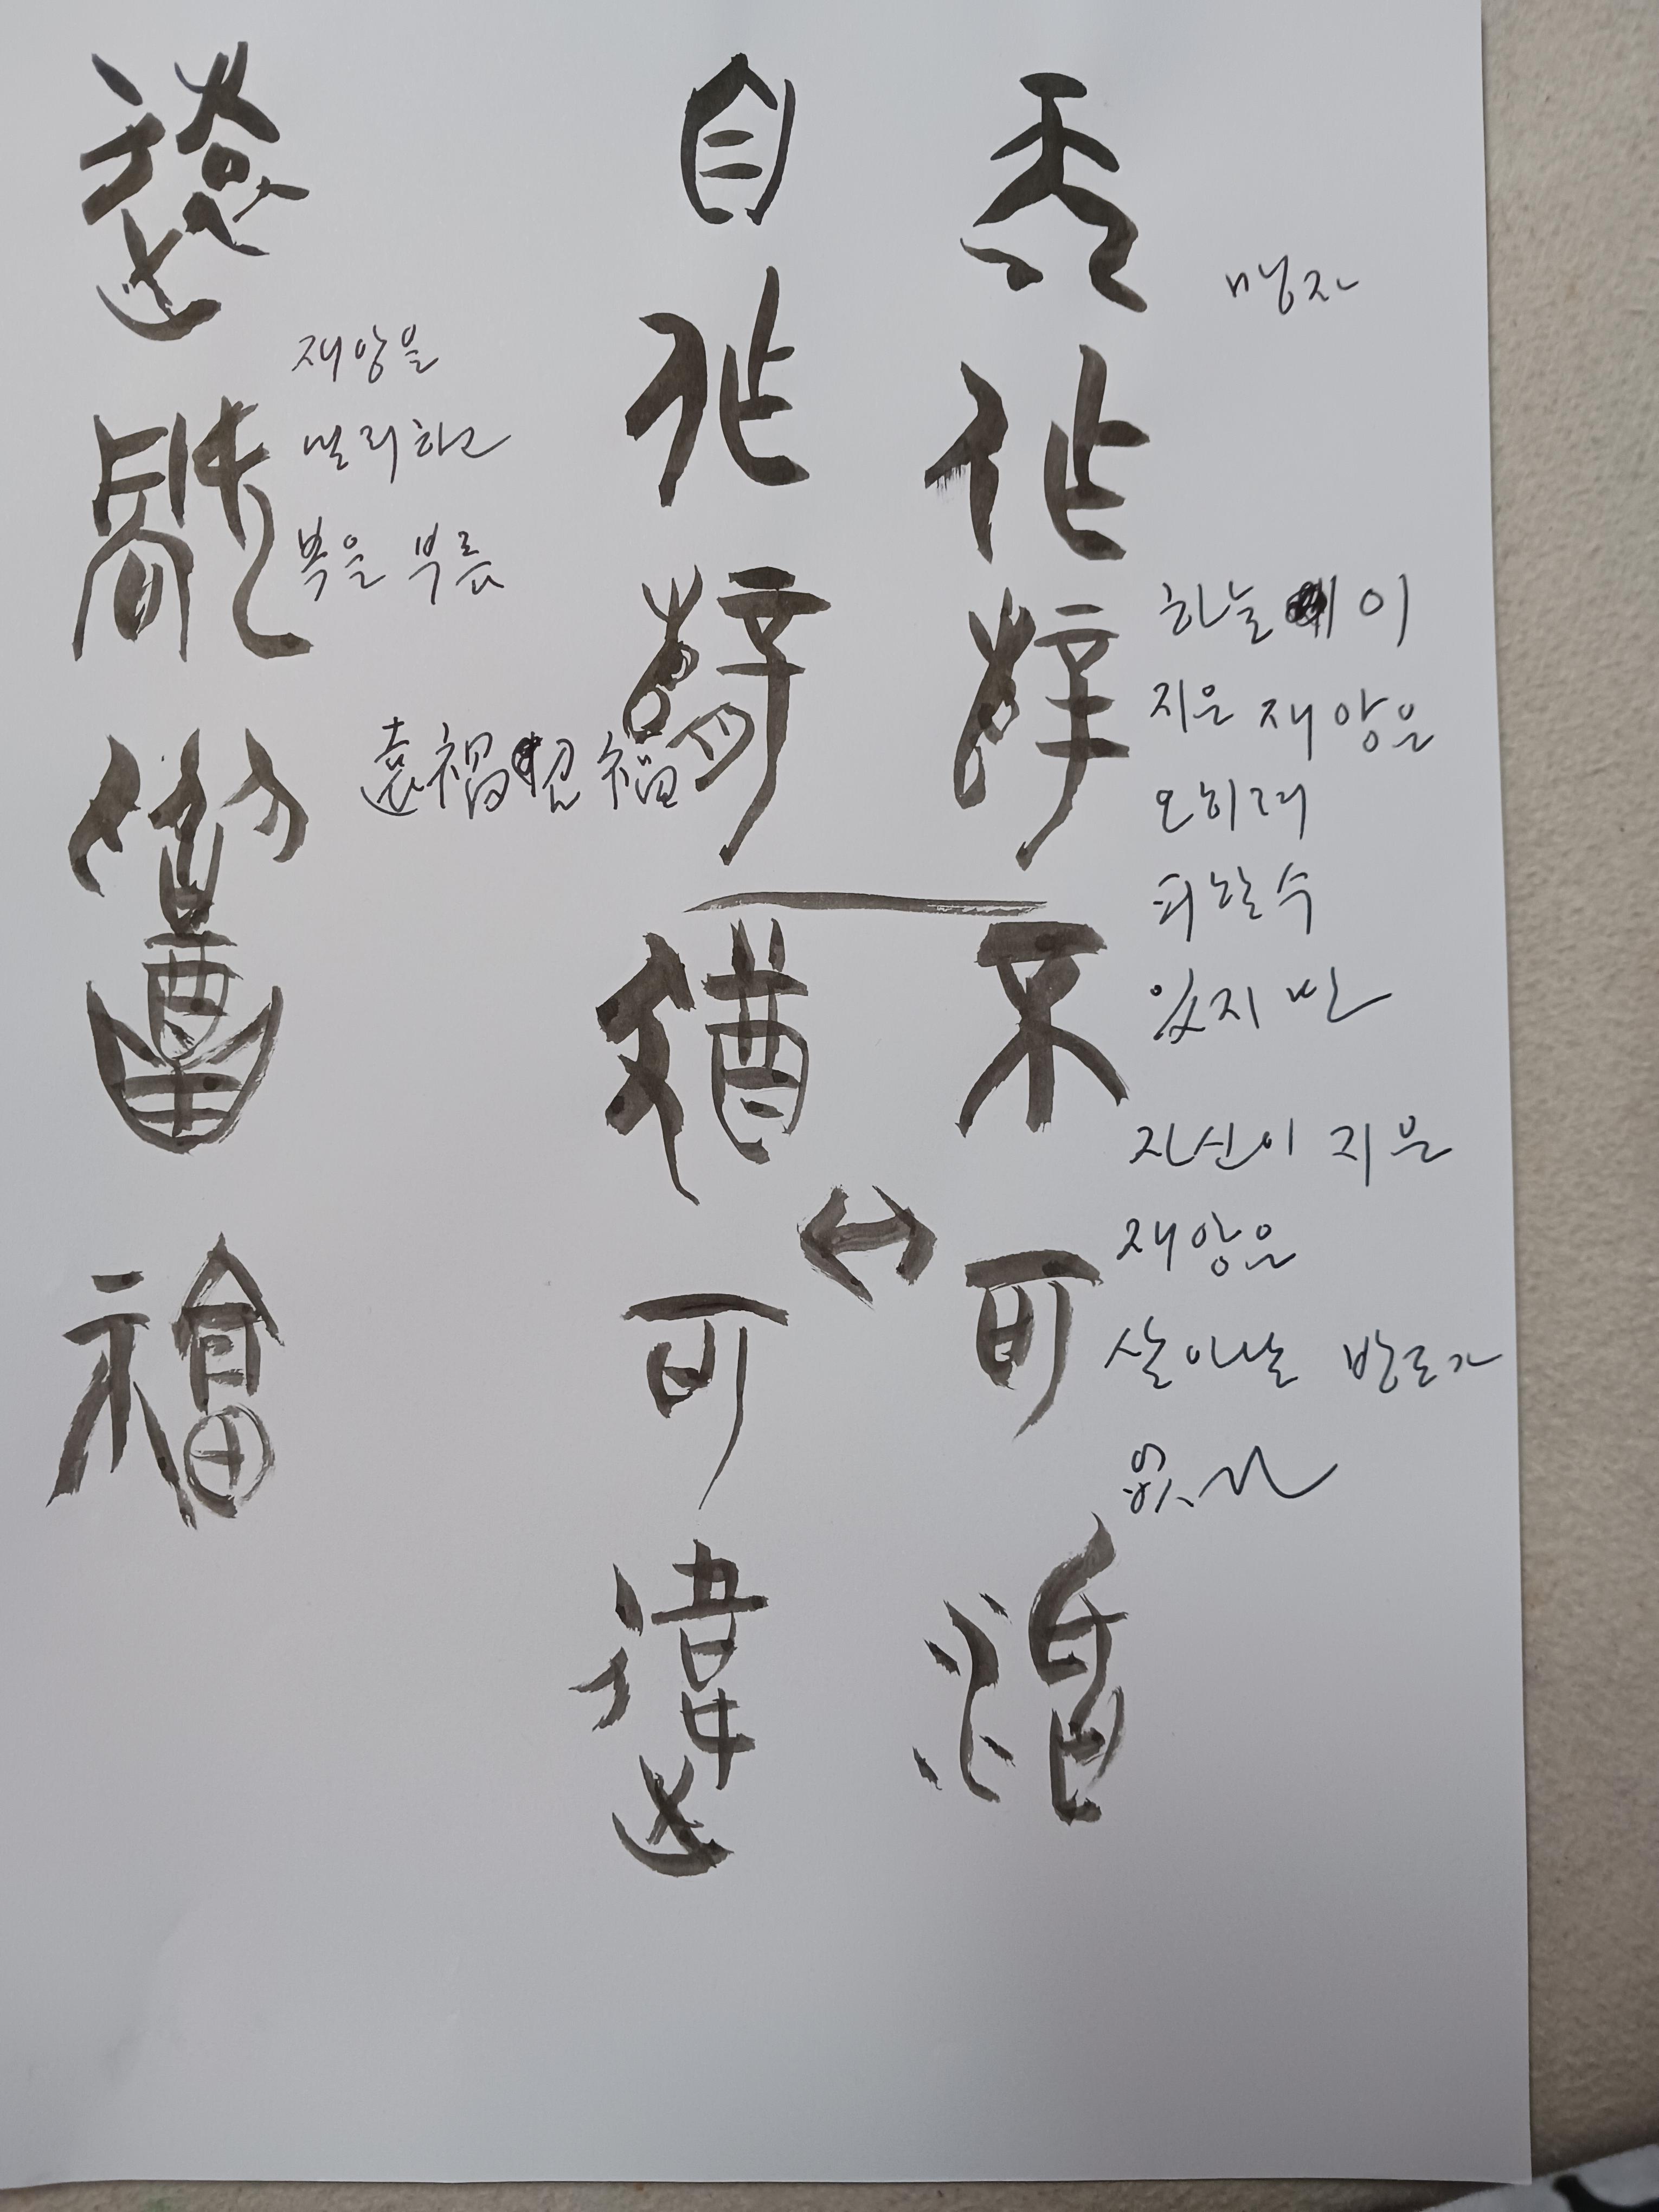 天作孼不可活
自作孼猶可違
遠禍召福
맹자
하늘이
지은 재앙은
오히려
피할 수
있지만
자신이 지은
재앙은
살아날 방도가
재앙을
멀리하고
복을 부름
遠禍召福